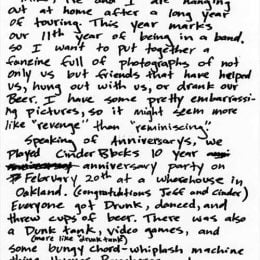 and I are hanging
out at home after a long year
of touring. This year marks
our 11th year of being in a band.
so I want to put together a
fanzine full of photographs of not
only us but friends that have helped
us, hung out with us, or drank our
Beer. I have some pretty embarrassi-
ng pictures, so it might seem more
like "revenge" than "reminiscing."
Speaking of Anniversarys, we
Played Cinder Blocks 10 year
anniversary party on
February 20th at a wherehouse in
Oakland. (congratulations Jeff and Cinder)
Everyone got Drunk, danced, and
threw cups of beer. There was also
a Dunk tank, video games, and
(more like "drunk tank")
some bungy chord-whiplash machine